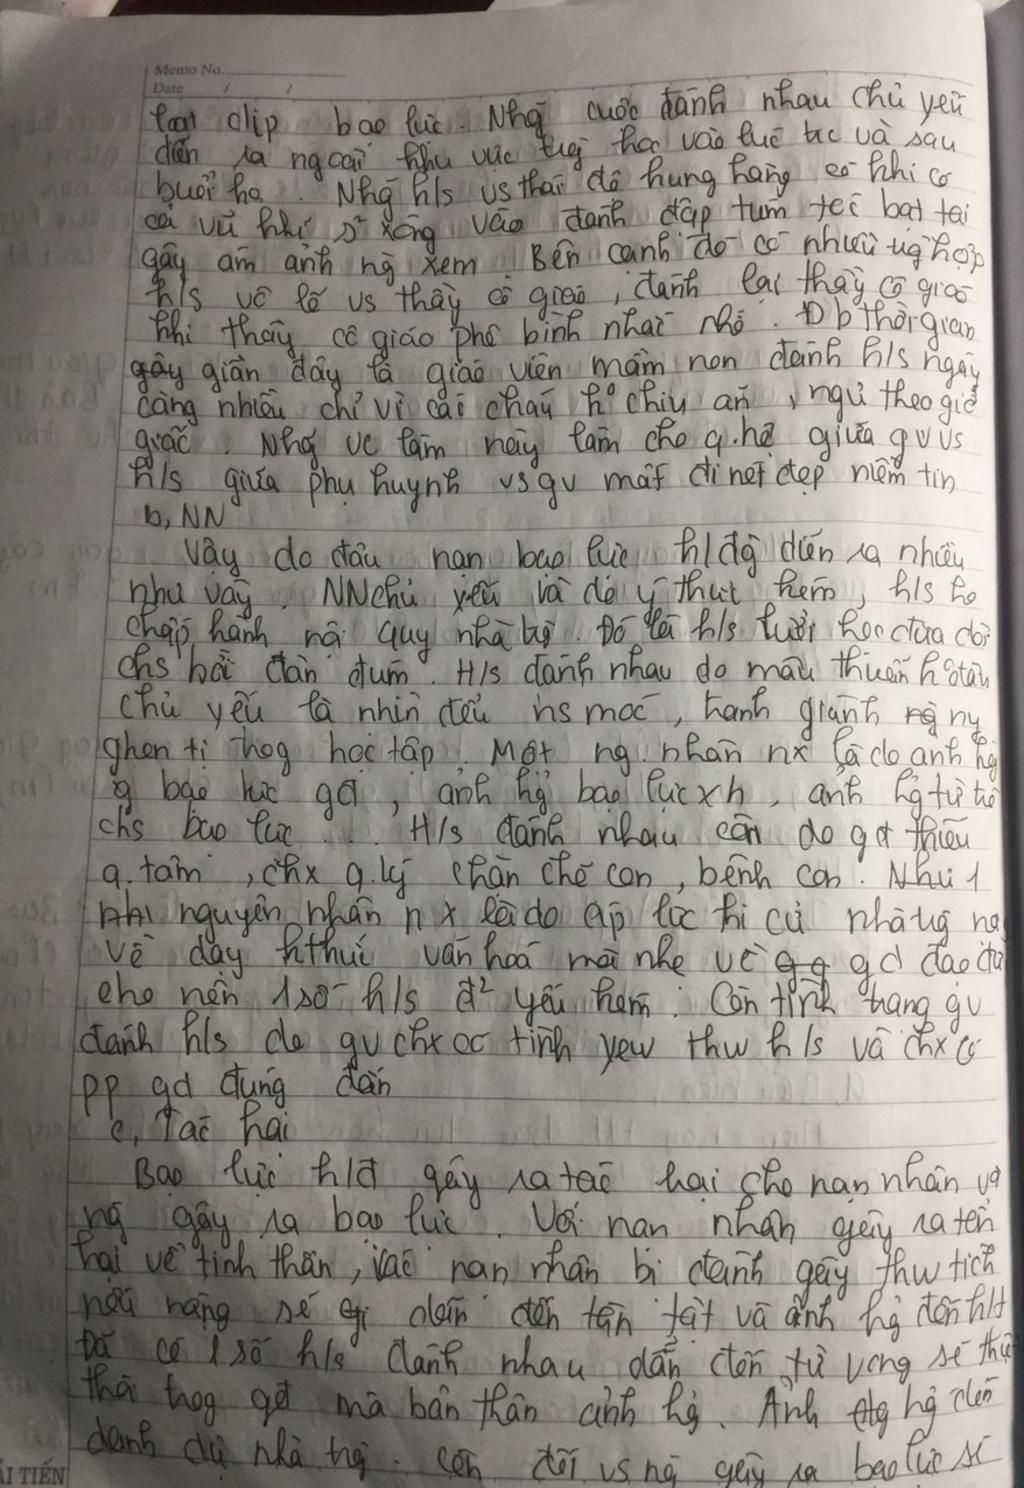 Memo No.
Date / /
loạt clip bạo lực. Nhg cuộc đánh nhau chủ yếu
diễn ra ngoài khu vực trg học vào lúc và sau
buổi ho. Nhg h/s vs thái độ hung hăng có khi có
cả vũ khí xông vào đánh đập túm tóc bạt tai
gây ám ảnh ng xem. Bên cạnh đó có nhiều trg hợp
h/s vô lễ vs thầy cô giáo, đánh lại thầy cô giáo
khi thầy cô giáo phê bình nhắc nhở. Đb thời gian
gây gần đây là giáo viên mầm non đánh h/s ngày
càng nhiều chỉ vì các cháu k° chịu ăn, ngủ theo giờ
giấc. Nhg vc làm này làm cho q.hệ giữa gv vs
h/s giữa phụ huynh vs gv mất đi nét đẹp niềm tin
b, NN
Vậy do đâu nạn bạo lực hlđg diễn ra nhiều
như vậy. NN chủ yếu là do ý thức kém, h/s ko
chấp hành nội quy nhà trg. Đó là h/s lười học đua đòi
chs bời đàn đúm. H/s đánh nhau do mâu thuẫn k° đâu
chủ yếu là nhìn đểu nói móc, tranh giành ny
ghen tị trog học tập. Một ng nhân nx là do ảnh hg
g bạo lực gđ, ảnh hg bạo lực xh, ảnh hg từ trò
chs bạo lực ... H/s đánh nhau còn do gđ thiếu
q.tâm, chx q.lý chặn chẽ con, bênh con. Như 1
nguyên nhân nx là do áp lực thi cử nhà trg nặ
về dạy kthức văn hoá mà nhẹ về gd đạo đức
cho nên 1 số h/s đ² yếu kém. Còn tình trạng gv
đánh h/s do gv chx có tình yew thw h/s và chx có
pp gd đúng đắn
c, Tác hại
Bạo lực hlđ gây ra tác hại cho nạn nhân và
ng gây ra bạo lực. Với nạn nhân gây ra tổn
hại về tinh thần, các nạn nhân bị đánh gây thw tích
nếu nặng sẽ dẫn đến tàn tật và ảnh hg đến hlt
Đã có 1 số h/s đánh nhau dẫn đến tử vong sẽ
trog gđ mà bản thân ảnh hg. Ảnh hg đến
danh dự nhà trg. Còn đối vs ng gây ra bạo lực sẽ
ẢI TIẾN